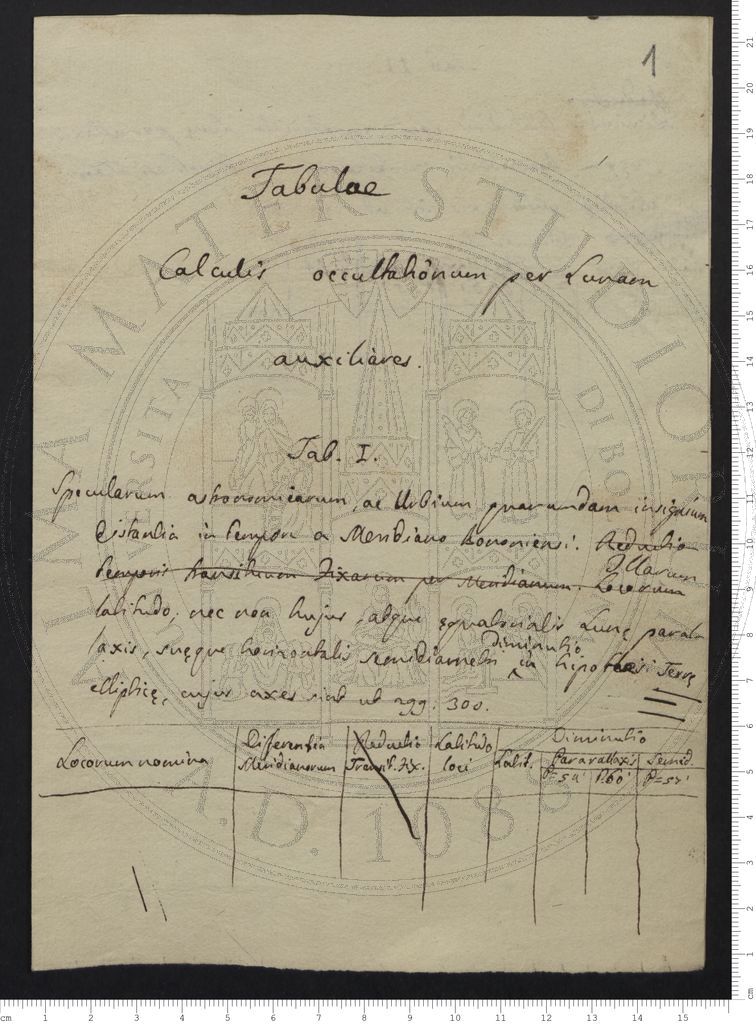 1
Tabulae
Calculis occultationum per Lunam
auxiliares.
Tab. I.
Specularum astronomicarum, ac Urbium quarundam insignium
distantia in tempore a Meridiano bononiensi. Reductio
temporis transituum Fixarum per Meridianum. Locorum Illarum
latitudo, nec non hujus, atque equatorialis Lunę paral-
laxis, suęque horizontalis semidiametri diminutio in hipothesi Terrę
ellipticę, cujus axes sint ut 299: 300.
Locorum nomina
Differentia Meridianorum
Reductio Transit. Fix.
Latitudo loci
Diminutio
Latit.
Pararallaxis
Semid.
P=54'
P.60'
P=57'
ALMA MATER STUDIORUM
UNIVERSITA DI BO
A.D. 1088